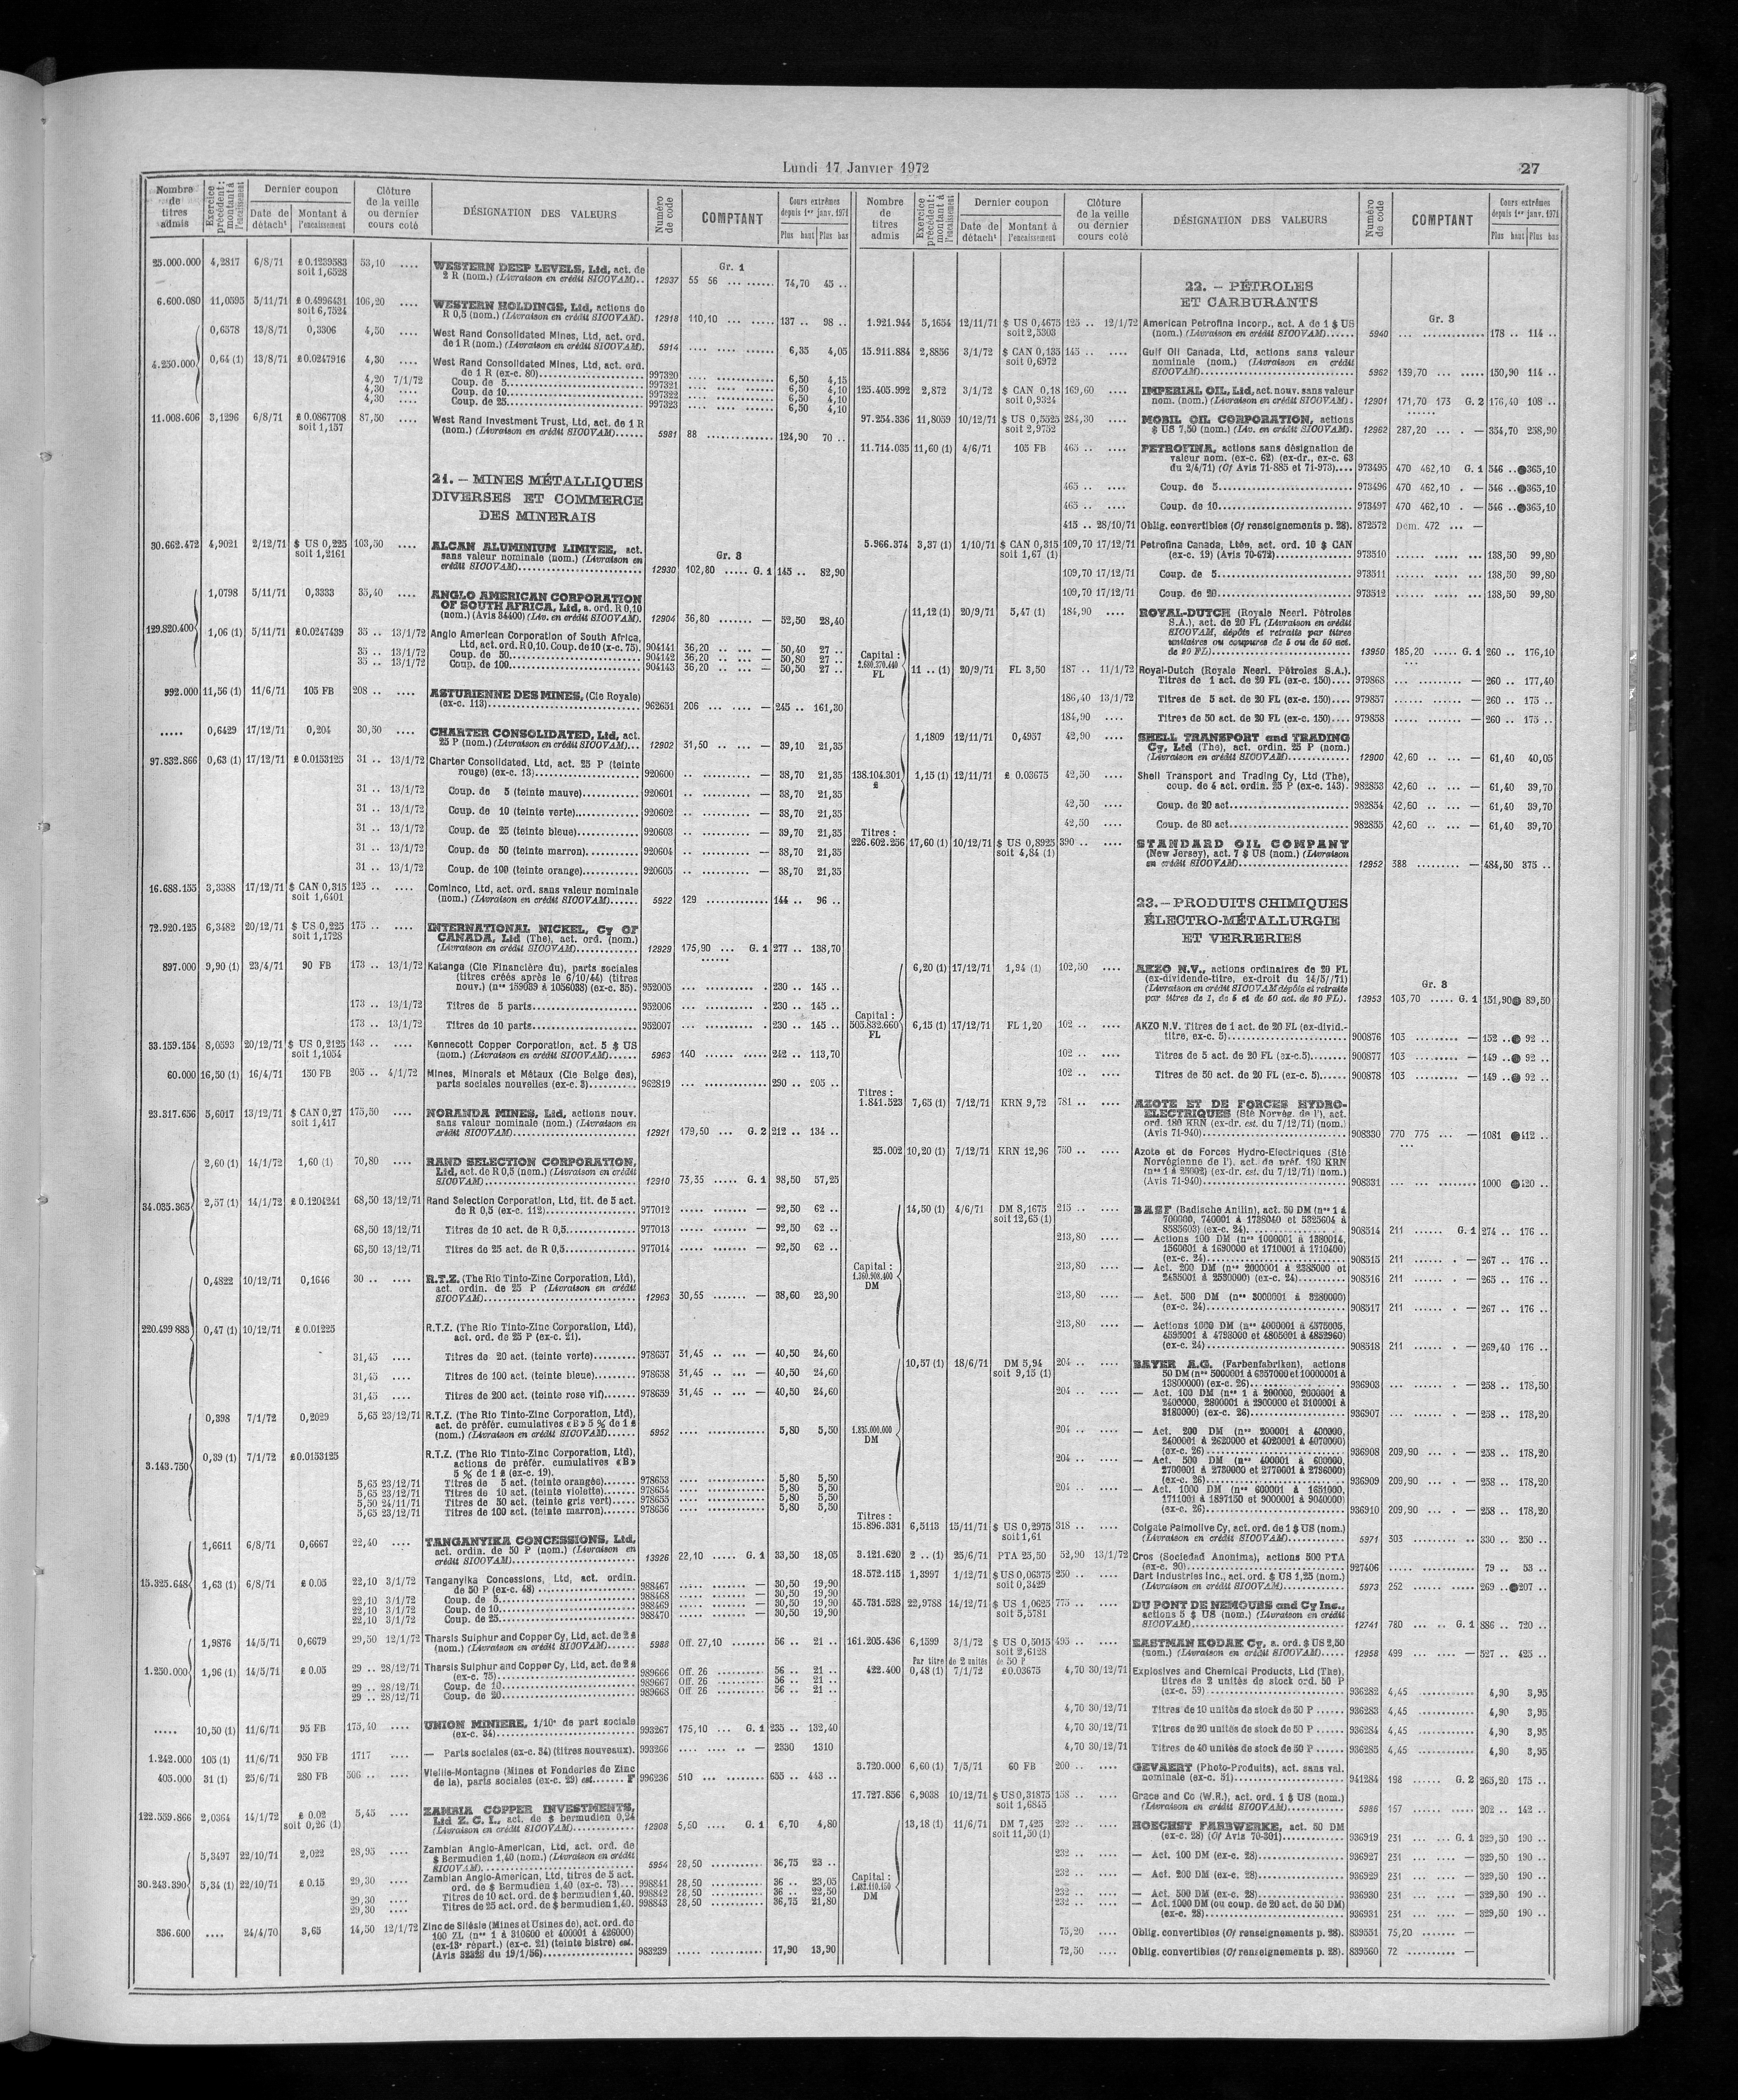 Lundi 17 Janvier 1972
27
Nombre de titres admis
Exercice précédent : montant à l'encaissement
Dernier coupon
Date de détach¹
Montant à l'encaissement
Clôture de la veille ou dernier cours coté
DÉSIGNATION DES VALEURS
Numéro de code
COMPTANT
Cours extrêmes depuis 1er janv. 1971
Plus haut Plus bas
Gr. 1
25.000.000 4,2817 6/8/71 £ 0.1239583 53,10 .... WESTERN DEEP LEVELS, Ltd, act. de
soit 1,6528 2 R (nom.) (Livraison en crédit SICOVAM).. 12937 55 56 ... ...... 74,70 45 ..
6.600.080 11,0595 5/11/71 £ 0.4996431 106,20 .... WESTERN HOLDINGS, Ltd, actions de
soit 6,7524 R 0,5 (nom.) (Livraison en crédit SICOVAM). 12918 110,10 ... ...... 137 .. 98 ..
0,6578 13/8/71 0,3306 4,50 .... West Rand Consolidated Mines, Ltd, act. ord.
de 1 R (nom.) (Livraison en crédit SICOVAM). 5914 .... .... ...... 6,35 4,05
4.250.000 0,64 (1) 13/8/71 £0.0247916 4,30 .... West Rand Consolidated Mines, Ltd, act. ord.
de 1 R (ex-c. 80) 997320 6,50 4,15
4,20 7/1/72 Coup. de 5 997321 6,50 4,10
4,30 .... Coup. de 10 997322 6,50 4,10
4,30 .... Coup. de 25 997323 6,50 4,10
11.008.606 3,1296 6/8/71 £ 0.0867708 87,50 .... West Rand Investment Trust, Ltd, act. de 1 R
soit 1,157 (nom.) (Livraison en crédit SICOVAM)...... 5981 88 124,90 70 ..
21. — MINES MÉTALLIQUES
DIVERSES ET COMMERCE
DES MINERAIS
Gr. 3
30.662.472 4,9021 2/12/71 $ US 0,225 103,50 .... ALCAN ALUMINIUM LIMITEE, act.
soit 1,2161 sans valeur nominale (nom.) (Livraison en
crédit SICOVAM) 12930 102,80 ..... G. 1 145 .. 82,90
1,0798 5/11/71 0,3333 35,40 .... ANGLO AMERICAN CORPORATION
OF SOUTH AFRICA, Ltd, a. ord. R 0,10
(nom.) (Avis 34400) (Liv. en crédit SICOVAM). 12904 36,80 — 52,50 28,40
129.820.400 1,06 (1) 5/11/71 £0.0247439 35 .. 13/1/72 Anglo American Corporation of South Africa,
Ltd, act. ord. R 0,10. Coup. de 10 (x-c. 75). 904141 36,20 — 50,40 27 ..
35 .. 13/1/72 Coup. de 50 904142 36,20 — 50,80 27 ..
35 .. 13/1/72 Coup. de 100 904143 36,20 — 50,50 27 ..
992.000 11,56 (1) 11/6/71 105 FB 208 .. .... ASTURIENNE DES MINES, (Cie Royale)
(ex-c. 113) 962651 206 — 245 .. 161,30
..... 0,6429 17/12/71 0,204 30,50 .... CHARTER CONSOLIDATED, Ltd, act.
25 P (nom.) (Livraison en crédit SICOVAM)... 12902 31,50 — 39,10 21,35
97.832.866 0,63 (1) 17/12/71 £ 0.0153125 31 .. 13/1/72 Charter Consolidated, Ltd, act. 25 P (teinte
rouge) (ex-c. 13) 920600 — 38,70 21,35
31 .. 13/1/72 Coup. de 5 (teinte mauve) 920601 — 38,70 21,35
31 .. 13/1/72 Coup. de 10 (teinte verte) 920602 — 38,70 21,35
31 .. 13/1/72 Coup. de 25 (teinte bleue) 920603 — 39,70 21,35
31 .. 13/1/72 Coup. de 50 (teinte marron) 920604 — 38,70 21,35
31 .. 13/1/72 Coup. de 100 (teinte orange) 920605 — 38,70 21,35
16.688.155 3,3388 17/12/71 $ CAN 0,315 125 .. .... Cominco, Ltd, act. ord. sans valeur nominale
soit 1,6401 (nom.) (Livraison en crédit SICOVAM)...... 5922 129 144 .. 96 ..
72.920.125 6,3482 20/12/71 $ US 0,225 175 .. .... INTERNATIONAL NICKEL, Cy OF
soit 1,1728 CANADA, Ltd (The), act. ord. (nom.)
(Livraison en crédit SICOVAM) 12929 175,90 ... G. 1 277 .. 138,70
897.000 9,90 (1) 23/4/71 90 FB 173 .. 13/1/72 Katanga (Cie Financière du), parts sociales
(titres créés après le 6/10/44) (titres
nouv.) (nos 159039 à 1056038) (ex-c. 35). 952005 230 .. 145 ..
173 .. 13/1/72 Titres de 5 parts 952006 230 .. 145 ..
173 .. 13/1/72 Titres de 10 parts 952007 230 .. 145 ..
33.159.154 8,0593 20/12/71 $ US 0,2125 143 .. .... Kennecott Copper Corporation, act. 5 $ US
soit 1,1054 (nom.) (Livraison en crédit SICOVAM)...... 5963 140 242 .. 113,70
60.000 16,50 (1) 16/4/71 150 FB 205 .. 4/1/72 Mines, Minerais et Métaux (Cie Belge des),
parts sociales nouvelles (ex-c. 3) 962819 290 .. 205 ..
23.317.656 5,6017 13/12/71 $ CAN 0,27 175,50 .... NORANDA MINES, Ltd, actions nouv.
soit 1,417 sans valeur nominale (nom.) (Livraison en
crédit SICOVAM) 12921 179,50 ... G. 2 212 .. 134 ..
2,60 (1) 14/1/72 1,60 (1) 70,80 .... RAND SELECTION CORPORATION,
Ltd, act. de R 0,5 (nom.) (Livraison en crédit
SICOVAM) 12910 73,35 ..... G. 1 98,50 57,25
34.035.365 2,57 (1) 14/1/72 £ 0.1204241 68,50 13/12/71 Rand Selection Corporation, Ltd, tit. de 5 act.
de R 0,5 (ex-c. 112) 977012 — 92,50 62 ..
68,50 13/12/71 Titres de 10 act. de R 0,5 977013 — 92,50 62 ..
68,50 13/12/71 Titres de 25 act. de R 0,5 977014 — 92,50 62 ..
0,4822 10/12/71 0,1646 30 .. .... R.T.Z. (The Rio Tinto-Zinc Corporation, Ltd),
act. ordin. de 25 P (Livraison en crédit
SICOVAM) 12963 30,55 — 38,60 23,90
220.499.883 0,47 (1) 10/12/71 £ 0.01225 R.T.Z. (The Rio Tinto-Zinc Corporation, Ltd),
act. ord. de 25 P (ex-c. 21).
31,45 .... Titres de 20 act. (teinte verte) 978657 31,45 — 40,50 24,60
31,45 .... Titres de 100 act. (teinte bleue) 978658 31,45 — 40,50 24,60
31,45 .... Titres de 200 act. (teinte rose vif) 978659 31,45 — 40,50 24,60
0,398 7/1/72 0,2029 5,65 23/12/71 R.T.Z. (The Rio Tinto-Zinc Corporation, Ltd),
act. de préfér. cumulatives «B» 5 % de 1 £
(nom.) (Livraison en crédit SICOVAM)...... 5952 5,80 5,50
3.143.750 0,39 (1) 7/1/72 £0.0153125 R.T.Z. (The Rio Tinto-Zinc Corporation, Ltd),
actions de préfér. cumulatives «B»
5 % de 1 £ (ex-c. 19).
5,65 23/12/71 Titres de 5 act. (teinte orangée) 978653 5,80 5,50
5,65 23/12/71 Titres de 10 act. (teinte violette) 978654 5,80 5,50
5,50 24/11/71 Titres de 50 act. (teinte gris vert) 978655 5,80 5,50
5,65 23/12/71 Titres de 100 act. (teinte marron) 978656 5,80 5,50
1,6611 6/8/71 0,6667 22,40 .... TANGANYIKA CONCESSIONS, Ltd,
act. ordin. de 50 P (nom.) (Livraison en
crédit SICOVAM) 13926 22,10 ..... G. 1 33,50 18,05
15.325.648 1,63 (1) 6/8/71 £ 0.05 22,10 3/1/72 Tanganyika Concessions, Ltd, act. ordin.
de 50 P (ex-c. 48) 988467 — 30,50 19,90
22,10 3/1/72 Coup. de 5 988468 — 30,50 19,90
22,10 3/1/72 Coup. de 10 988469 — 30,50 19,90
22,10 3/1/72 Coup. de 25 988470 — 30,50 19,90
1,9876 14/5/71 0,6679 29,50 12/1/72 Tharsis Sulphur and Copper Cy, Ltd, act. de 2 £
(nom.) (Livraison en crédit SICOVAM)...... 5988 Off. 27,10 56 .. 21 ..
1.250.000 1,96 (1) 14/5/71 £ 0.05 29 .. 28/12/71 Tharsis Sulphur and Copper Cy, Ltd, act. de 2 £
(ex-c. 75) 989666 Off. 26 56 .. 21 ..
29 .. 28/12/71 Coup. de 10 989667 Off. 26 56 .. 21 ..
29 .. 28/12/71 Coup. de 20 989668 Off. 26 56 .. 21 ..
..... 10,50 (1) 11/6/71 95 FB 175,40 .... UNION MINIERE, 1/10e de part sociale
(ex-c. 34) 993267 175,10 ... G. 1 235 .. 132,40
1.242.000 105 (1) 11/6/71 950 FB 1717 .... — Parts sociales (ex-c. 34) (titres nouveaux). 993266 — 2330 1310
405.000 31 (1) 25/6/71 280 FB 506 .. .... Vieille-Montagne (Mines et Fonderies de Zinc
de la), parts sociales (ex-c. 29) est...... F 996236 510 655 .. 443 ..
122.559.866 2,0364 14/1/72 £ 0.02 5,45 .... ZAMBIA COPPER INVESTMENTS,
soit 0,26 (1) Ltd Z. C. I., act. de $ bermudien 0,24
(Livraison en crédit SICOVAM) 12908 5,50 .... G. 1 6,70 4,80
5,3497 22/10/71 2,022 28,95 .... Zambian Anglo-American, Ltd, act. ord. de
$ Bermudien 1,40 (nom.) (Livraison en crédit
SICOVAM) 5954 28,50 36,75 23 ..
30.243.390 5,34 (1) 22/10/71 £ 0.15 29,30 .... Zambian Anglo-American, Ltd, titres de 5 act.
ord. de $ Bermudien 1,40 (ex-c. 73) 998841 28,50 36 .. 23,05
29,30 .... Titres de 10 act. ord. de $ bermudien 1,40. 998842 28,50 36 .. 22,50
29,30 .... Titres de 25 act. ord. de $ bermudien 1,40. 998843 28,50 36,75 21,80
336.600 .... 24/4/70 3,65 14,50 12/1/72 Zinc de Silésie (Mines et Usines de), act. ord. de
100 ZL (nos 1 à 310600 et 400001 à 426000)
(ex-13e répart.) (ex-c. 21) (teinte bistre) est.
(Avis 32828 du 19/1/56) 983239 17,90 13,90
Nombre de titres admis
Exercice précédent : montant à l'encaissement
Dernier coupon
Date de détach¹
Montant à l'encaissement
Clôture de la veille ou dernier cours coté
DÉSIGNATION DES VALEURS
Numéro de code
COMPTANT
Cours extrêmes depuis 1er janv. 1971
Plus haut Plus bas
22. — PÉTROLES
ET CARBURANTS
Gr. 3
1.921.944 5,1654 12/11/71 $ US 0,4675 125 .. 12/1/72 American Petrofina Incorp., act. A de 1 $ US
soit 2,5303 (nom.) (Livraison en crédit SICOVAM)...... 5940 178 .. 114 ..
15.911.884 2,8856 3/1/72 $ CAN 0,135 145 .. .... Gulf Oil Canada, Ltd, actions sans valeur
soit 0,6972 nominale (nom.) (Livraison en crédit
SICOVAM) 5962 139,70 150,90 114 ..
125.405.992 2,872 3/1/72 $ CAN 0,18 169,60 .... IMPERIAL OIL, Ltd, act. nouv. sans valeur
soit 0,9324 nom. (nom.) (Livraison en crédit SICOVAM). 12901 171,70 173 G. 2 176,40 108 ..
97.254.336 11,8059 10/12/71 $ US 0,5525 284,30 .... MOBIL OIL CORPORATION, actions
soit 2,9752 $ US 7,50 (nom.) (Liv. en crédit SICOVAM). 12962 287,20 — 354,70 258,90
11.714.035 11,60 (1) 4/6/71 105 FB 465 .. .... PETROFINA, actions sans désignation de
valeur nom. (ex-c. 62) (ex-dr., ex-c. 63
du 2/4/71) (Cf Avis 71-885 et 71-973) 973495 470 462,10 G. 1 546 .. ●365,10
465 .. .... Coup. de 5 973496 470 462,10 — 546 .. ●365,10
465 .. .... Coup. de 10 973497 470 462,10 — 546 .. ●365,10
415 .. 28/10/71 Oblig. convertibles (Cf renseignements p. 28). 872572 Dem. 472 —
5.966.374 3,37 (1) 1/10/71 $ CAN 0,315 109,70 17/12/71 Petrofina Canada, Ltée, act. ord. 10 $ CAN
soit 1,67 (1) (ex-c. 19) (Avis 70-672) 973510 138,50 99,80
109,70 17/12/71 Coup. de 5 973511 138,50 99,80
109,70 17/12/71 Coup. de 20 973512 138,50 99,80
11,12 (1) 20/9/71 5,47 (1) 184,90 .... ROYAL-DUTCH (Royale Neerl. Pétroles
S.A.), act. de 20 FL (Livraison en crédit
SICOVAM, dépôts et retraits par titres
unitaires ou coupures de 5 ou de 50 act.
de 20 FL) 13950 185,20 ..... G. 1 260 .. 176,10
Capital :
2.680.370.440
FL
11 .. (1) 20/9/71 FL 3,50 187 .. 11/1/72 Royal-Dutch (Royale Neerl. Pétroles S.A.).
Titres de 1 act. de 20 FL (ex-c. 150) 979868 — 260 .. 177,40
186,40 13/1/72 Titres de 5 act. de 20 FL (ex-c. 150) 979857 — 260 .. 175 ..
184,90 .... Titres de 50 act. de 20 FL (ex-c. 150) 979858 — 260 .. 175 ..
1,1809 12/11/71 0,4957 42,90 .... SHELL TRANSPORT and TRADING
Cy, Ltd (The), act. ordin. 25 P (nom.)
(Livraison en crédit SICOVAM) 12900 42,60 — 61,40 40,05
138.104.301 £ 1,15 (1) 12/11/71 £ 0.03675 42,50 .... Shell Transport and Trading Cy, Ltd (The),
coup. de 4 act. ordin. 25 P (ex-c. 143). 982853 42,60 — 61,40 39,70
42,50 .... Coup. de 20 act 982854 42,60 — 61,40 39,70
42,50 .... Coup. de 80 act 982855 42,60 — 61,40 39,70
Titres :
226.602.256 17,60 (1) 10/12/71 $ US 0,8925 390 .. .... STANDARD OIL COMPANY
soit 4,84 (1) (New Jersey), act. 7 $ US (nom.) (Livraison
en crédit SICOVAM) 12952 388 — 484,50 375 ..
23. — PRODUITS CHIMIQUES
ÉLECTRO-MÉTALLURGIE
ET VERRERIES
Gr. 3
6,20 (1) 17/12/71 1,94 (1) 102,50 .... AKZO N.V., actions ordinaires de 20 FL
(ex-dividende-titre, ex-droit du 14/5/71)
(Livraison en crédit SICOVAM dépôts et retraits
par titres de 1, de 5 et de 50 act. de 20 FL). 13953 103,70 ..... G. 1 151,90● 89,50
Capital :
505.832.660
FL
6,15 (1) 17/12/71 FL 1,20 102 .. .... AKZO N.V. Titres de 1 act. de 20 FL (ex-divid.-
titre, ex-c. 5) 900876 103 — 152 ..● 92 ..
102 .. .... Titres de 5 act. de 20 FL (ex-c.5) 900877 103 — 149 ..● 92 ..
102 .. .... Titres de 50 act. de 20 FL (ex-c. 5) 900878 103 — 149 ..● 92 ..
Titres :
1.841.523 7,65 (1) 7/12/71 KRN 9,72 781 .. .... AZOTE ET DE FORCES HYDRO-
ELECTRIQUES (Sté Norvég. de l'), act.
ord. 180 KRN (ex-dr. est. du 7/12/71) (nom.)
(Avis 71-940) 908330 770 775 — 1081 ●412 ..
25.002 10,20 (1) 7/12/71 KRN 12,96 750 .. .... Azote et de Forces Hydro-Electriques (Sté
Norvégienne de l'), act. de préf. 180 KRN
(nos 1 à 25002) (ex-dr. est. du 7/12/71) (nom.)
(Avis 71-940) 908331 1000 ●420 ..
14,50 (1) 4/6/71 DM 8,1675 215 .. .... BASF (Badische Anilin), act. 50 DM (nos 1 à
soit 12,65 (1) 700000, 740001 à 1738040 et 5325604 à
8585603) (ex-c. 24) 908514 211 ...... G. 1 274 .. 176 ..
213,80 — Actions 100 DM (nos 1000001 à 1380014,
1560001 à 1690000 et 1710001 à 1710400)
(ex-c. 24) 908515 211 — 267 .. 176 ..
Capital :
1.360.908.400
DM
213,80 — Act. 200 DM (nos 2000001 à 2385000 et
2435001 à 2520000) (ex-c. 24) 908516 211 — 265 .. 176 ..
213,80 .... — Act. 500 DM (nos 3000001 à 3280000)
(ex-c. 24) 908517 211 — 267 .. 176 ..
213,80 .... — Actions 1000 DM (nos 4000001 à 4375005,
4595001 à 4798000 et 4805001 à 4852960)
(ex-c. 24) 908518 211 — 269,40 176 ..
10,57 (1) 18/6/71 DM 5,94 204 .. .... BAYER A.G. (Farbenfabriken), actions
soit 9,15 (1) 50 DM (nos 5000001 à 6357000 et 10000001 à
13800000) (ex-c. 26) 936903 — 258 .. 178,50
204 .. .... — Act. 100 DM (nos 1 à 200000, 2000001 à
2400000, 2800001 à 2900000 et 3100001 à
3180000) (ex-c. 26) 936907 — 258 .. 178,20
1.835.000.000
DM
204 .. .... — Act. 200 DM (nos 200001 à 400000,
2400001 à 2620000 et 4020001 à 4070000)
(ex-c. 26) 936908 209,90 — 258 .. 178,20
204 .. .... — Act. 500 DM (nos 400001 à 600000,
2700001 à 2730000 et 2770001 à 2796000)
(ex-c. 26) 936909 209,90 — 258 .. 178,20
204 .. .... — Act. 1000 DM (nos 600001 à 1651000,
1711001 à 1897150 et 9000001 à 9040000)
(ex-c. 26) 936910 209,90 — 258 .. 178,20
Titres :
15.896.331 6,5113 15/11/71 $ US 0,2975 318 .. .... Colgate Palmolive Cy, act. ord. de 1 $ US (nom.)
soit 1,61 (Livraison en crédit SICOVAM) 5971 303 330 .. 250 ..
3.121.620 2 .. (1) 25/6/71 PTA 25,50 52,90 13/1/72 Cros (Sociedad Anonima), actions 500 PTA
(ex-c. 90) 927406 79 .. 53 ..
18.572.115 1,3997 1/12/71 $ US 0,06375 250 .. .... Dart Industries Inc., act. ord. $ US 1,25 (nom.)
soit 0,3429 (Livraison en crédit SICOVAM) 5973 252 269 ..●207 ..
45.731.528 22,9788 14/12/71 $ US 1,0625 775 .. .... DU PONT DE NEMOURS and Cy Inc.,
soit 5,5781 actions 5 $ US (nom.) (Livraison en crédit
SICOVAM) 12741 780 ... .. G. 1 886 .. 720 ..
161.205.436 6,1599 3/1/72 $ US 0,5015 495 .. .... EASTMAN KODAK Cy, a. ord. $ US 2,50
soit 2,6128 (nom.) (Livraison en crédit SICOVAM) 12958 499 — 527 .. 425 ..
Par titre de 2 unités de 50 P
422.400 0,48 (1) 7/1/72 £0.03675 4,70 30/12/71 Explosives and Chemical Products, Ltd (The),
titres de 2 unités de stock ord. 50 P
(ex-c. 59) 936282 4,45 4,90 3,95
4,70 30/12/71 Titres de 10 unités de stock de 50 P 936283 4,45 4,90 3,95
4,70 30/12/71 Titres de 20 unités de stock de 50 P 936284 4,45 4,90 3,95
4,70 30/12/71 Titres de 40 unités de stock de 50 P 936285 4,45 4,90 3,95
3.720.000 6,60 (1) 7/5/71 60 FB 200 .. .... GEVAERT (Photo-Produits), act. sans val.
nominale (ex-c. 51) 941284 198 ...... G. 2 265,20 175 ..
17.727.856 6,9038 10/12/71 $ US 0,31875 158 .. .... Grace and Co (W.R.), act. ord. 1 $ US (nom.)
soit 1,6845 (Livraison en crédit SICOVAM) 5986 157 202 .. 142 ..
13,18 (1) 11/6/71 DM 7,425 232 .. .... HOECHST FARBWERKE, act. 50 DM
soit 11,50 (1) (ex-c. 28) (Cf Avis 70-301) 936919 231 ... ... G. 1 329,50 190 ..
232 .. .... — Act. 100 DM (ex-c. 28) 936927 231 — 329,50 190 ..
Capital :
1.482.110.150
DM
232 .. .... — Act. 200 DM (ex-c. 28) 936929 231 — 329,50 190 ..
232 .. .... — Act. 500 DM (ex-c. 28) 936930 231 — 329,50 190 ..
232 .. .... — Act. 1000 DM (ou coup. de 20 act. de 50 DM)
(ex-c. 28) 936931 231 — 329,50 190 ..
75,20 .... Oblig. convertibles (Cf renseignements p. 28). 839551 75,20 —
72,50 .... Oblig. convertibles (Cf renseignements p. 28). 839560 72 —